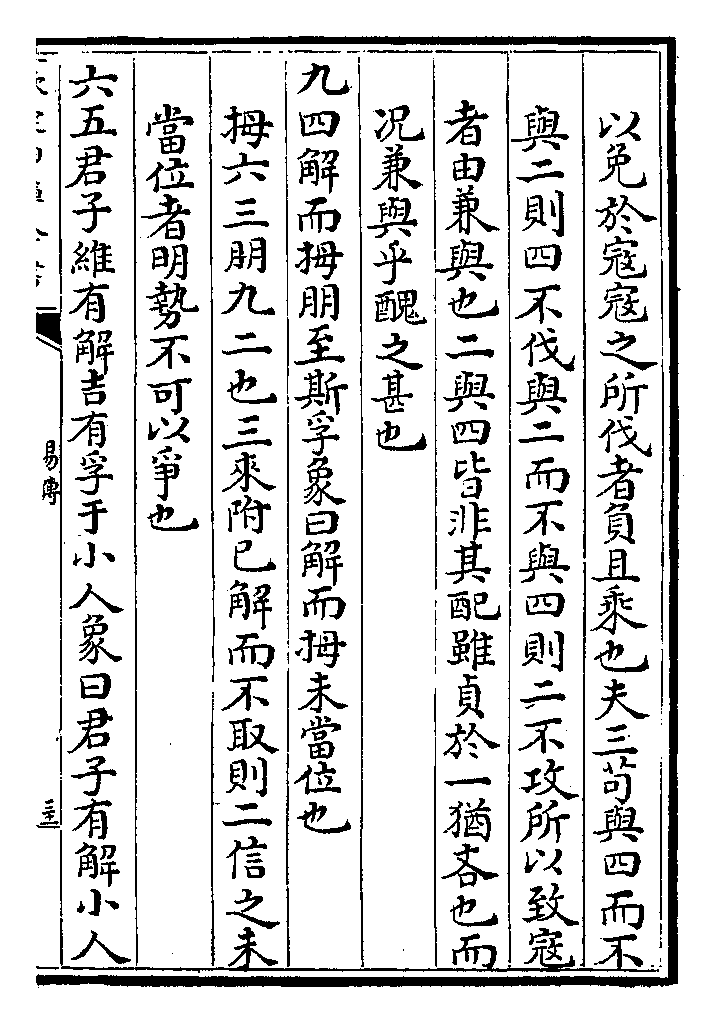 以免於寇寇之所伐者負且乘也夫三苟與四而不
與二則四不伐與二而不與四則二不攻所以致寇
者由兼與也二與四皆非其配雖貞於一猶吝也而
况兼與乎醜之甚也
九四解而拇朋至斯孚象曰解而拇未當位也
拇六三朋九二也三來附已解而不取則二信之未
當位者明勢不可以爭也
六五君子維有解吉有孚于小人象曰君子有解小人
易傳